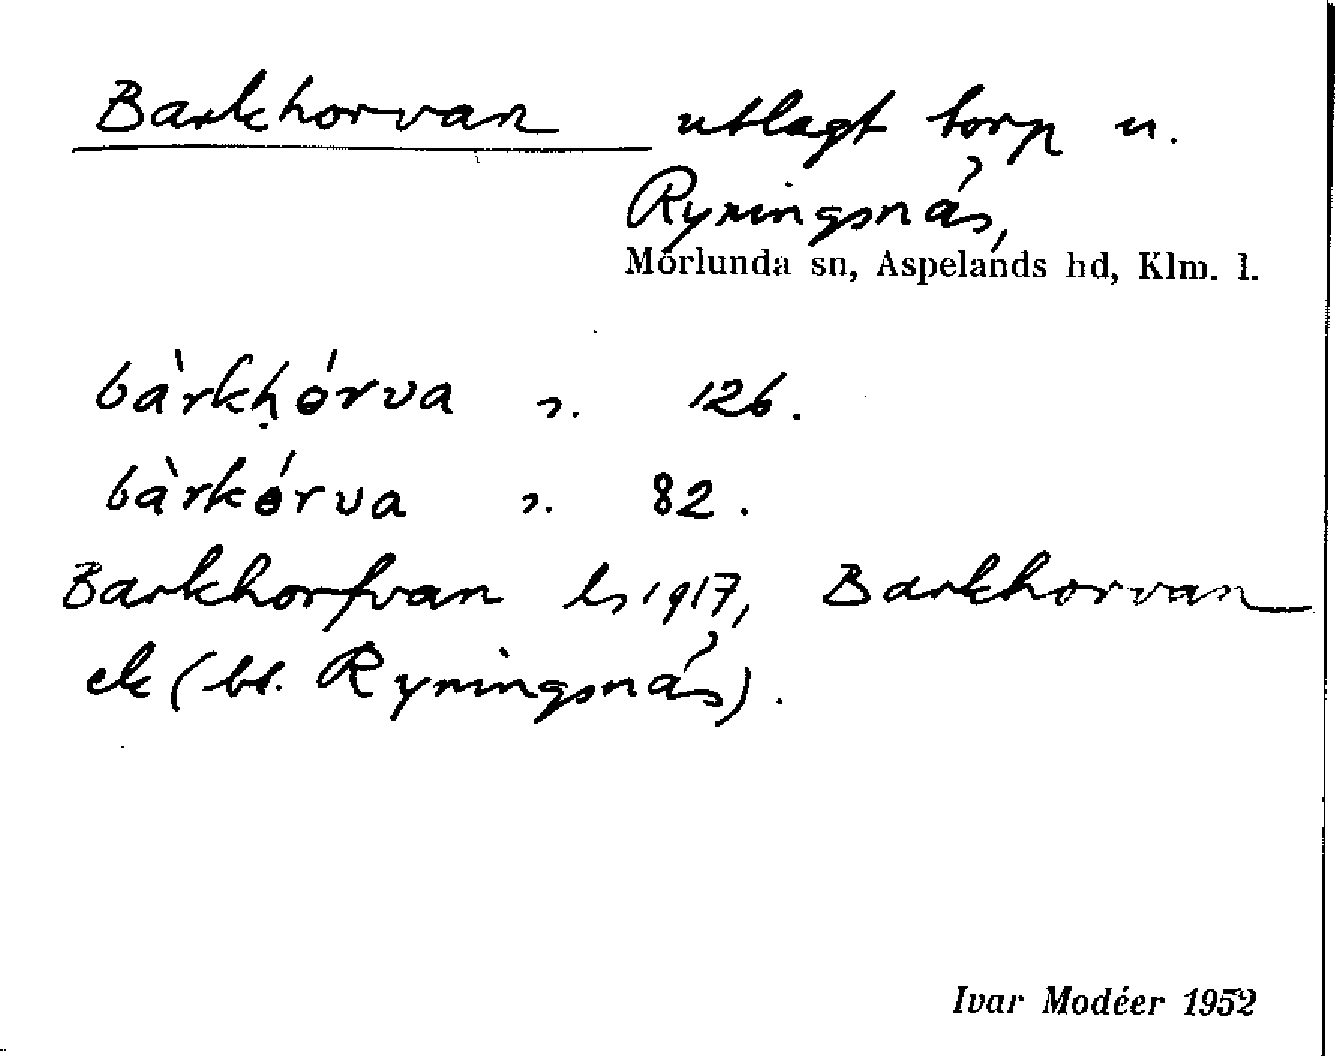 Barkhorvan utlagt torp u.
Ryningsnäs,
Mörlunda sn, Aspelands hd, Klm. l.
bàrkḥórva s. 126.
bàrkórva s. 82.
Barkhorfvan ls 1917, Barkhorvan
ek (bl. Ryningsnäs).
Ivar Modéer 1952